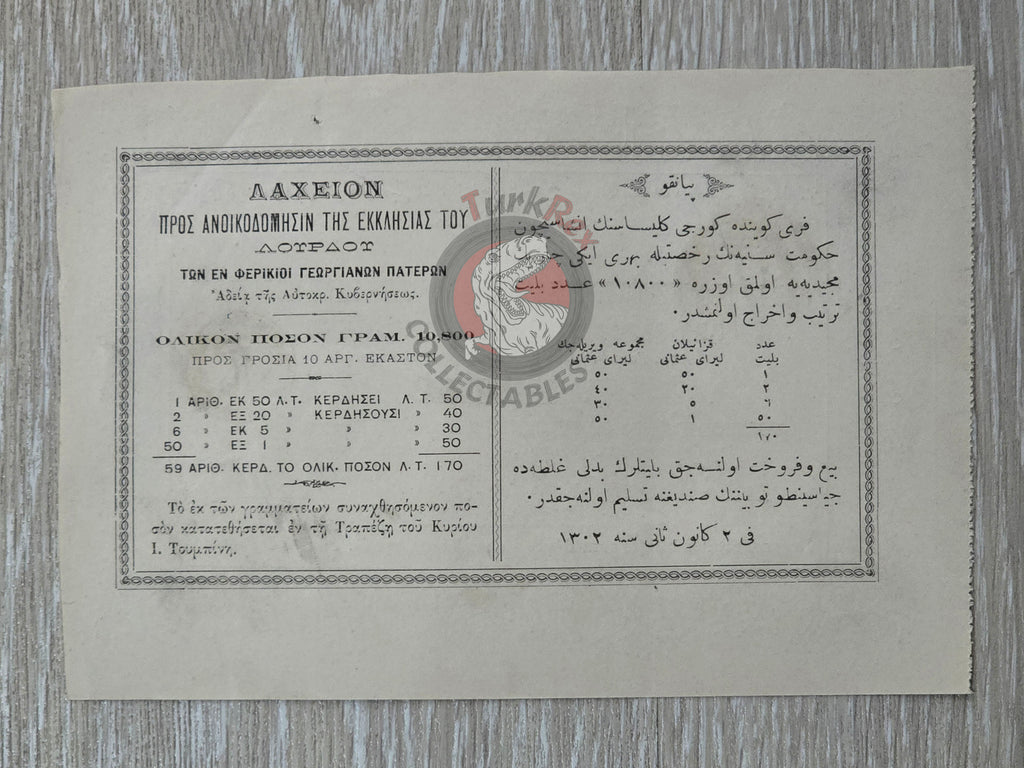 ΛΑΧΕΙΟΝ
ΠΡΟΣ ΑΝΟΙΚΟΔΟΜΗΣΙΝ ΤΗΣ ΕΚΚΛΗΣΙΑΣ ΤΟΥ
ΛΟΥΡΔΟΥ
ΤΩΝ ΕΝ ΦΕΡΙΚΙΟΙ ΓΕΩΡΓΙΑΝΩΝ ΠΑΤΕΡΩΝ
Ἀδείᾳ τῆς Αὐτοκρ. Κυβερνήσεως.
ΟΛΙΚΟΝ ΠΟΣΟΝ ΓΡΑΜ. 10,800
ΠΡΟΣ ΓΡΟΣΙΑ 10 ΑΡΓ. ΕΚΑΣΤΟΝ
1 ΑΡΙΘ. ΕΚ 50 Λ.Τ. ΚΕΡΔΗΣΕΙ Λ. Τ. 50
2 » ΕΞ 20 » ΚΕΡΔΗΣΟΥΣΙ » 40
6 » ΕΚ 5 » » » 30
50 » ΕΞ 1 » » » 50
59 ΑΡΙΘ. ΚΕΡΔ. ΤΟ ΟΛΙΚ. ΠΟΣΟΝ Λ.Τ. 170
Τὸ ἐκ τῶν γραμματείων συναχθησόμενον πο-
σὸν κατατεθήσεται ἐν τῇ Τραπέζῃ τοῦ Κυρίου
Ι. Τουμπίνη.
پيانقو
فرى كوينده كورجى كليساسنك انشاسيچون
حكومت سنيه‌نك رخصتيله بهرى ايكى چيرك
مجيديه‌يه اولمق اوزره «١٠٨٠٠» عدد بليت
ترتيب و اخراج اولنمشدر.
عدد قزانيلان مجموعه ويريله‌جك
بليت ليراى عثمانى ليراى عثمانى
١ ٥٠ ٥٠
٢ ٢٠ ٤٠
٦ ٥ ٣٠
٥٠ ١ ٥٠
١٧٠
بيع و فروخت اولنه‌جق بليتلرك بدلى غلطه‌ده
صنديغنه تسليم اولنه‌جقدر.
فى ٢ كانون ثانى سنه ١٣٠٢
TurkRex
COLLECTABLES